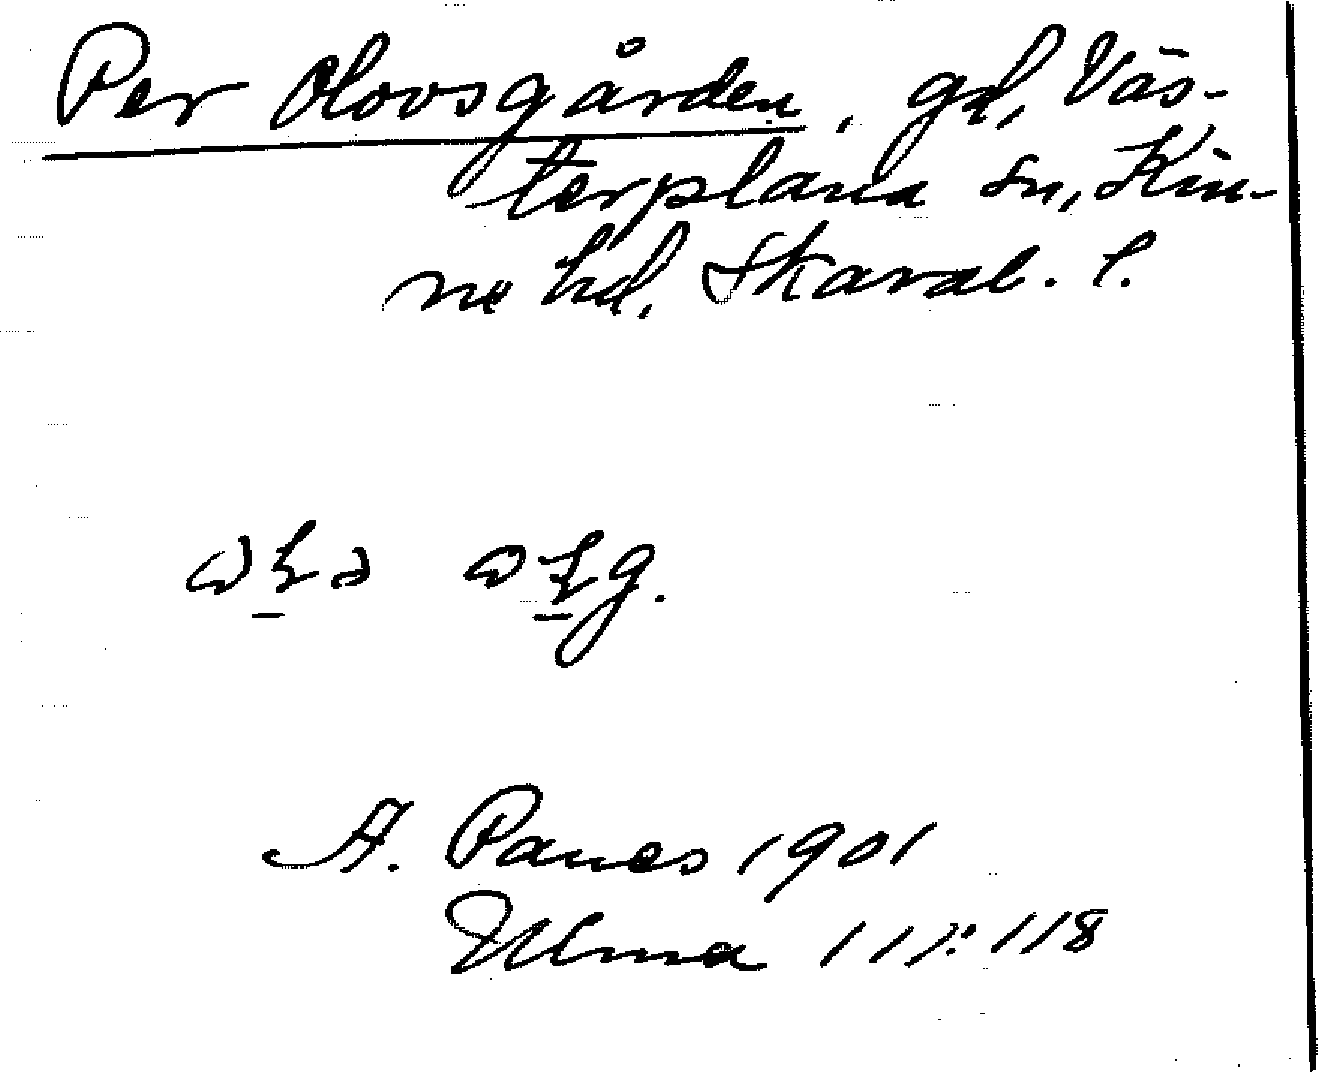 Per Olovsgården, gd, Väs-
terplana sn, Kin-
ne hd, Skarab. l.
A. Panes 1901
Ulma 117:118